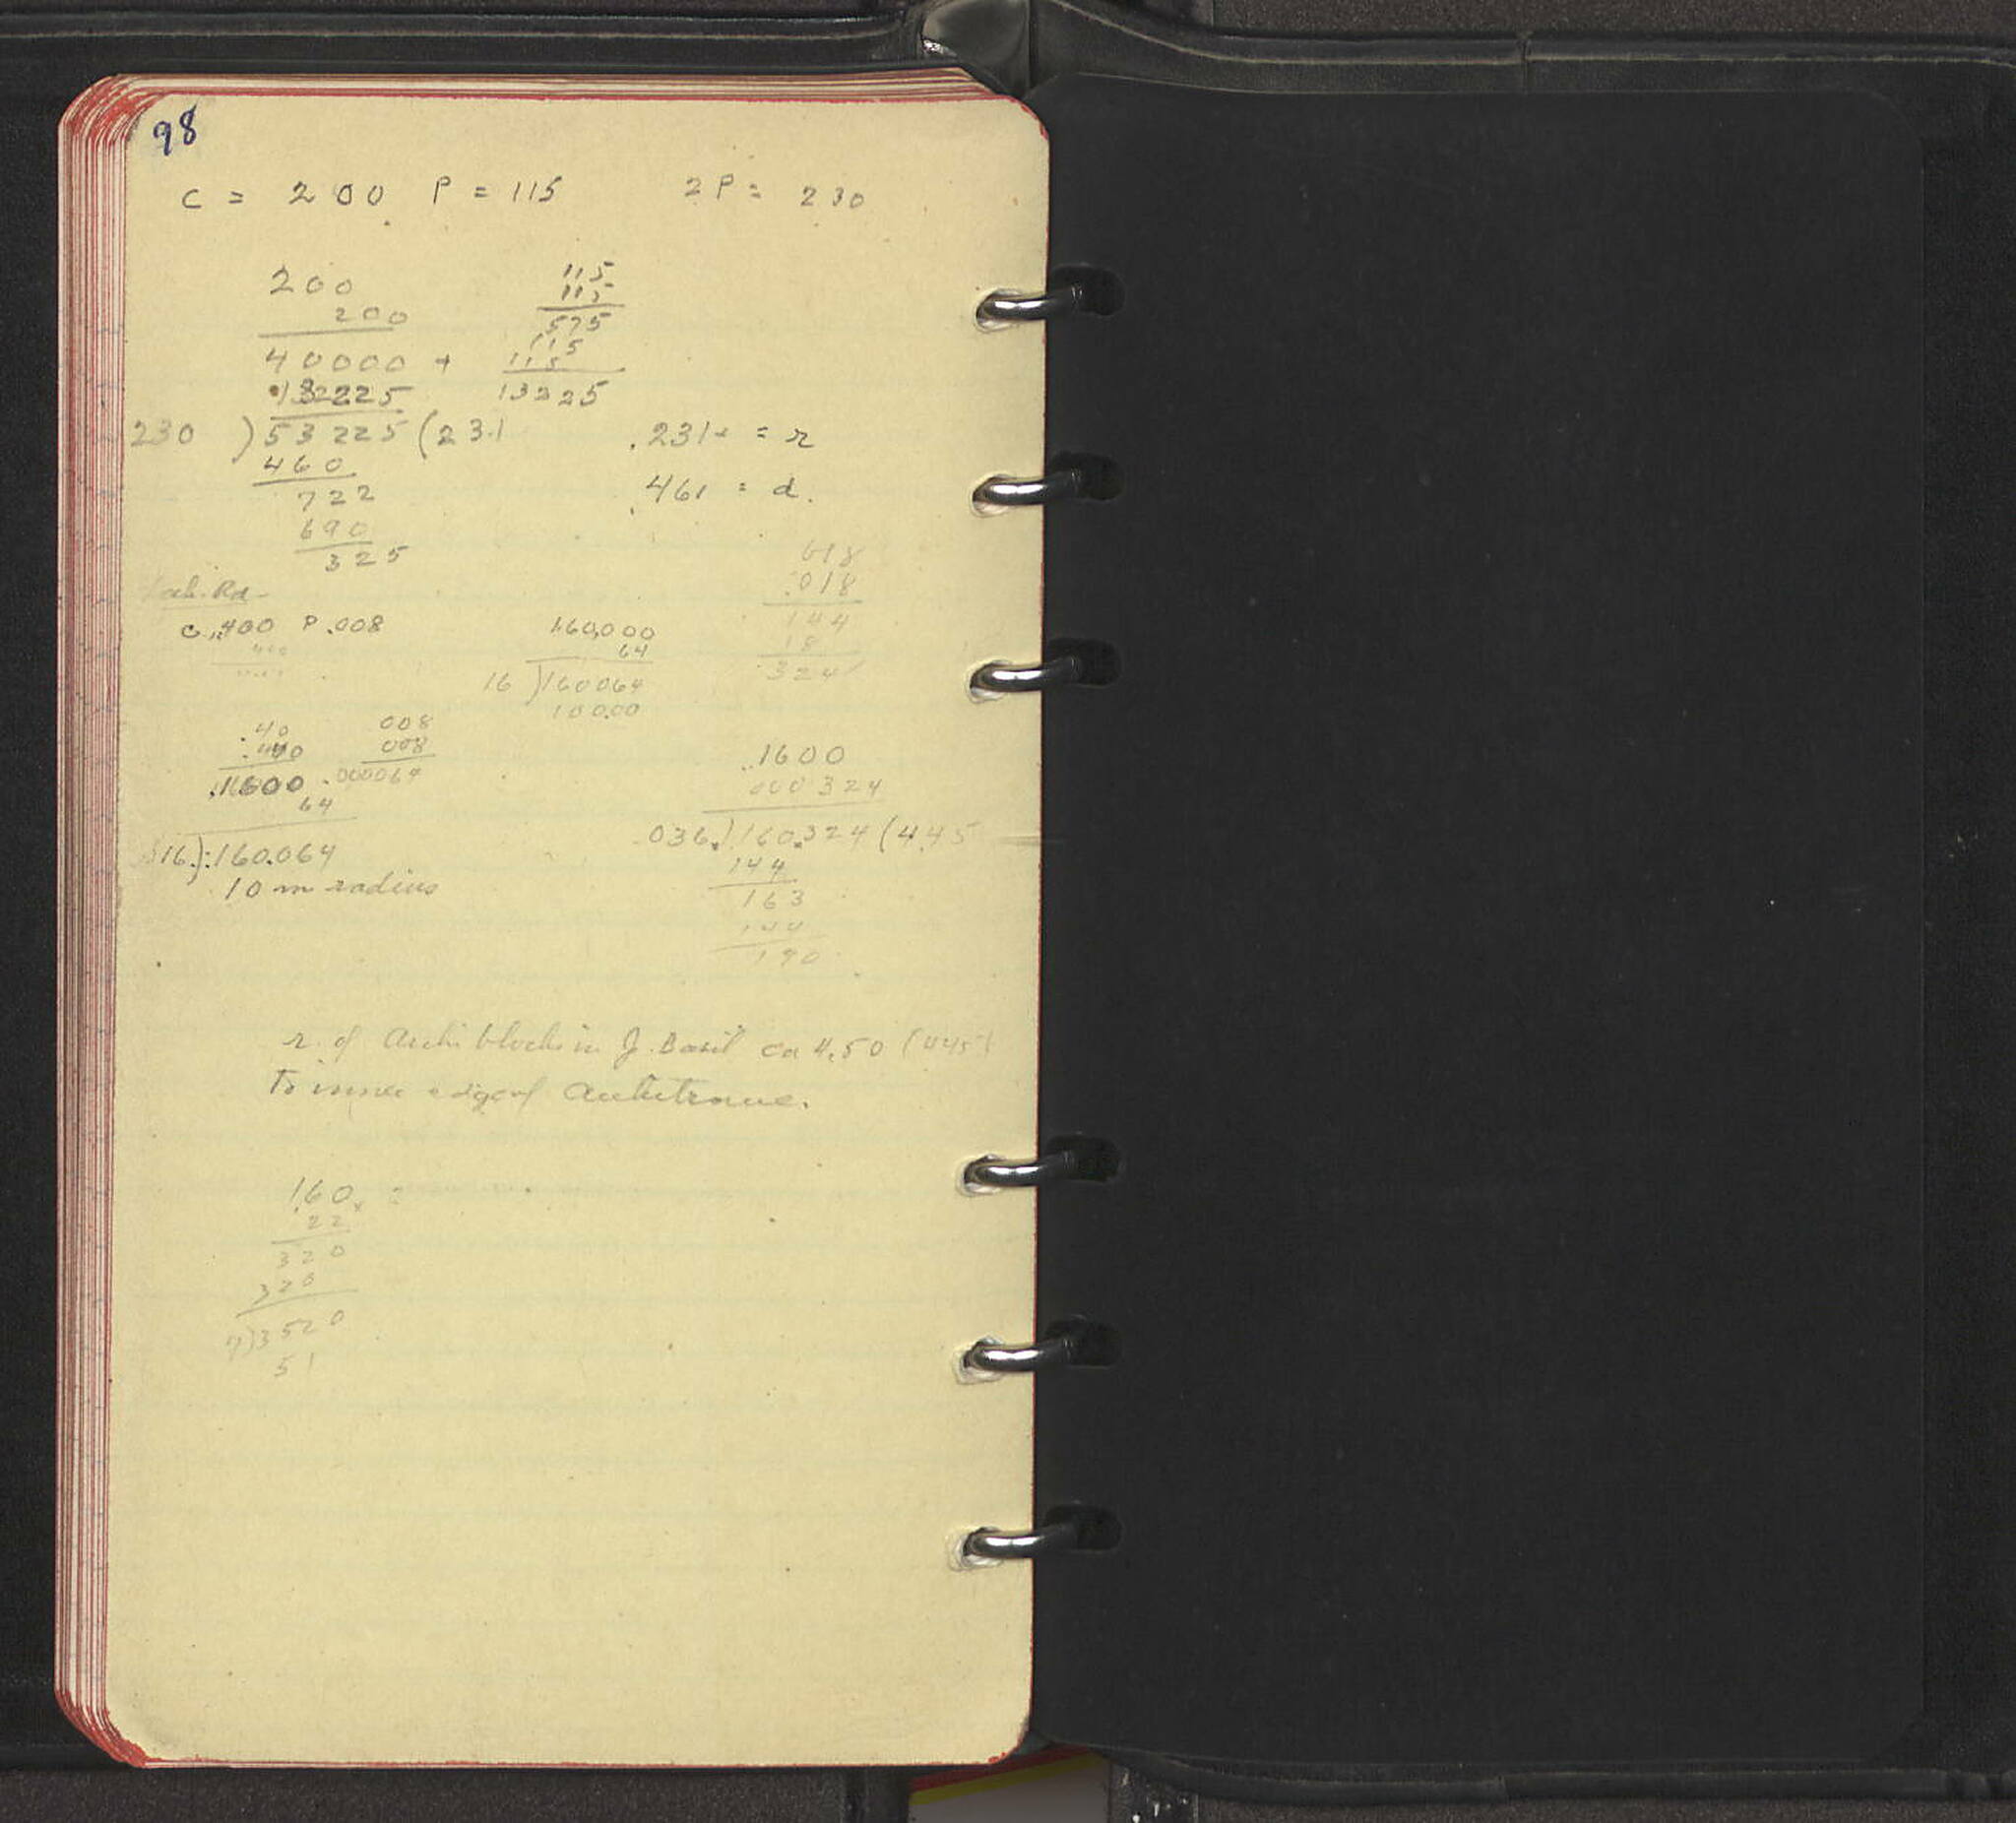 98
C = 200 P = 115 2P = 230
200
200
40000 +
13225
230 ) 53225 ( 231
460
722
690
325
115
115
575
115
115
13225
.231+ = r
.461 = d.
Rd
C .400 P .008
400
160,000
64
16 ) 160064
100.00
618
.018
144
18
324
.40
.40
.1600
64
016.) .160.064
10 m radius
008
008
.000064
.1600
000324
.036.) .160.324 ( 4.45
144
163
144
190
r. of Archi blocks in J. Basil ca 4.50 (445)
To inner edge of Architrave.
1.60 x 2
22
320
320
7)3520
51